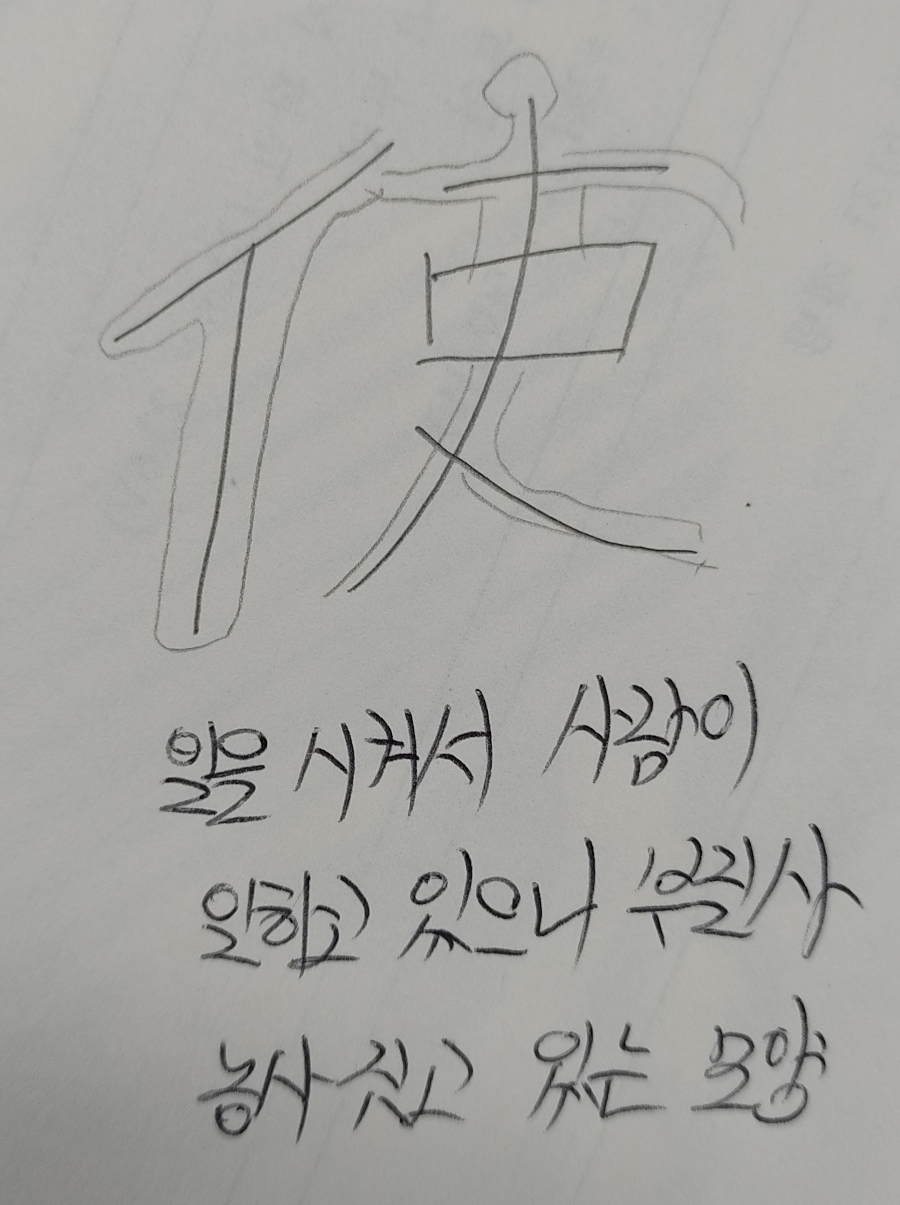 使
일을 시켜서 사람이
일하고 있으니 부릴사
농사 짓고 있는 모양